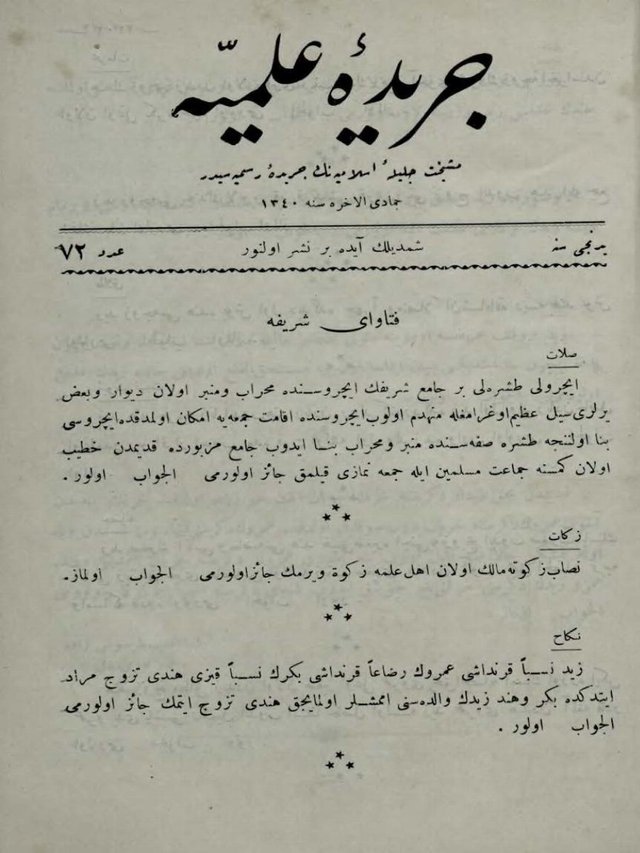 جريدهٔ علميّه
مشيخت جليلهٔ اسلاميه‌نك جريدهٔ رسميه‌سيدر
جمادى الاخره سنه ١٣٤٠
يدنجى سنه
شمديلك آيده بر نشر اولنور
عدد ٧٢
فتاواى شريفه
صلات
ايچرولى طشره‌لى بر جامع شريفك ايچروسنده محراب ومنبر اولان ديوار وبعض
يرلرى سيل عظيم اوغرامغله منهدم اولوب ايچروسنده اقامت جمعه‌يه امكان اولمدقده ايچروسى
بنا اولننجه طشره صفه‌سنده منبر ومحراب بنا ايدوب جامع مزبورده قديمدن خطيب
اولان كمسنه جماعت مسلمين ايله جمعه نمازى قيلمق جائز اولورمى الجواب اولور .
زكات
نصاب زكوته مالك اولان اهل علمه زكوة ويرمك جائز اولورمى الجواب اولماز.
نكاح
زيد نسباً قرنداشى عمروك رضاعاً قرنداشى بكرك نسباً قيزى هندى تزوج مراد
ايتدكده بكر وهند زيدك والده‌سنى اممشلر اولمايجق هندى تزوج ايتمك جائز اولورمى
الجواب اولور .